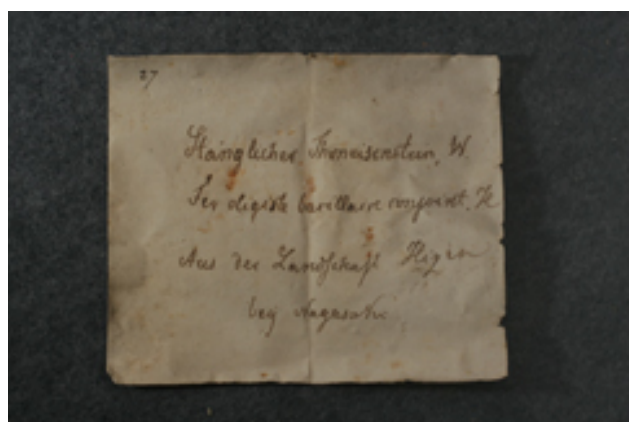 27
Stänglicher Thoneisenstein, W.
Fer oligiste bacillaire conjoint, H
Aus der Landschaft Higen
bey Nagasaki